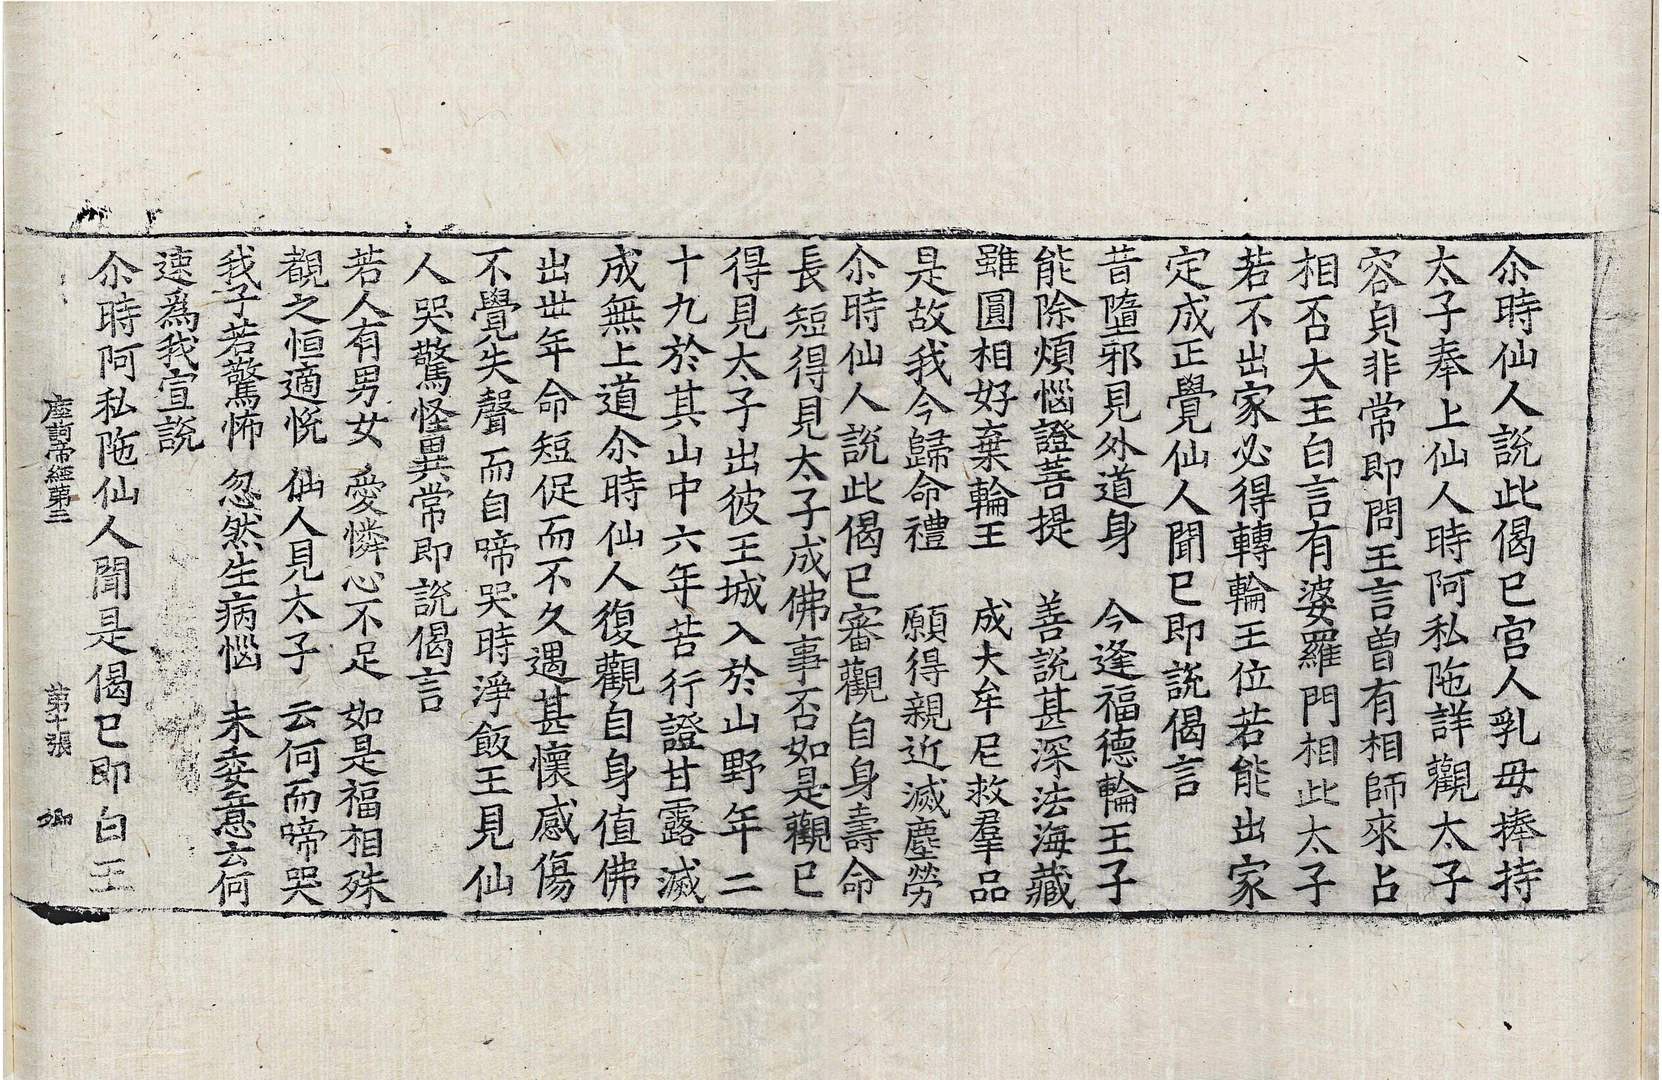 尒時仙人說此偈已宮人乳母捧持
太子奉上仙人時阿私陁詳觀太子
容皃非常即問王言曽有相師來占
相否大王白言有婆羅門相此太子
若不出家必得轉輪王位若能出家
定成正覺仙人聞已即說偈言
昔墮邪見外道身　今逢福德輪王子
能除煩惱證菩提　善說甚深法海藏
雖圓相好棄輪王　成大牟尼救羣品
是故我今歸命禮　願得親近滅塵勞
尒時仙人說此偈已審觀自身壽命
長短得見太子成佛事否如是觀已
得見太子出彼王城入於山野年二
十九於其山中六年苦行證甘露滅
成無上道尒時仙人復觀自身值佛
出世年命短促而不久遇甚懷感傷
不覺失聲而自啼哭時淨飯王見仙
人哭驚怪異常即說偈言
若人有男女　愛憐心不足　如是福相殊
覩之恒適悅　仙人見太子　云何而啼哭
我子若驚怖　忽然生病惱　未委意云何
速爲我宣說
尒時阿私陁仙人聞是偈已即白王
帝經第二　第十張